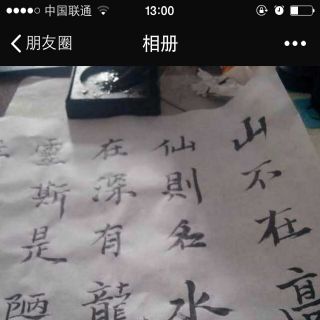 中国联通 13:00
朋友圈 相册
山不在高
仙則名水
在深有龍
靈斯是陋